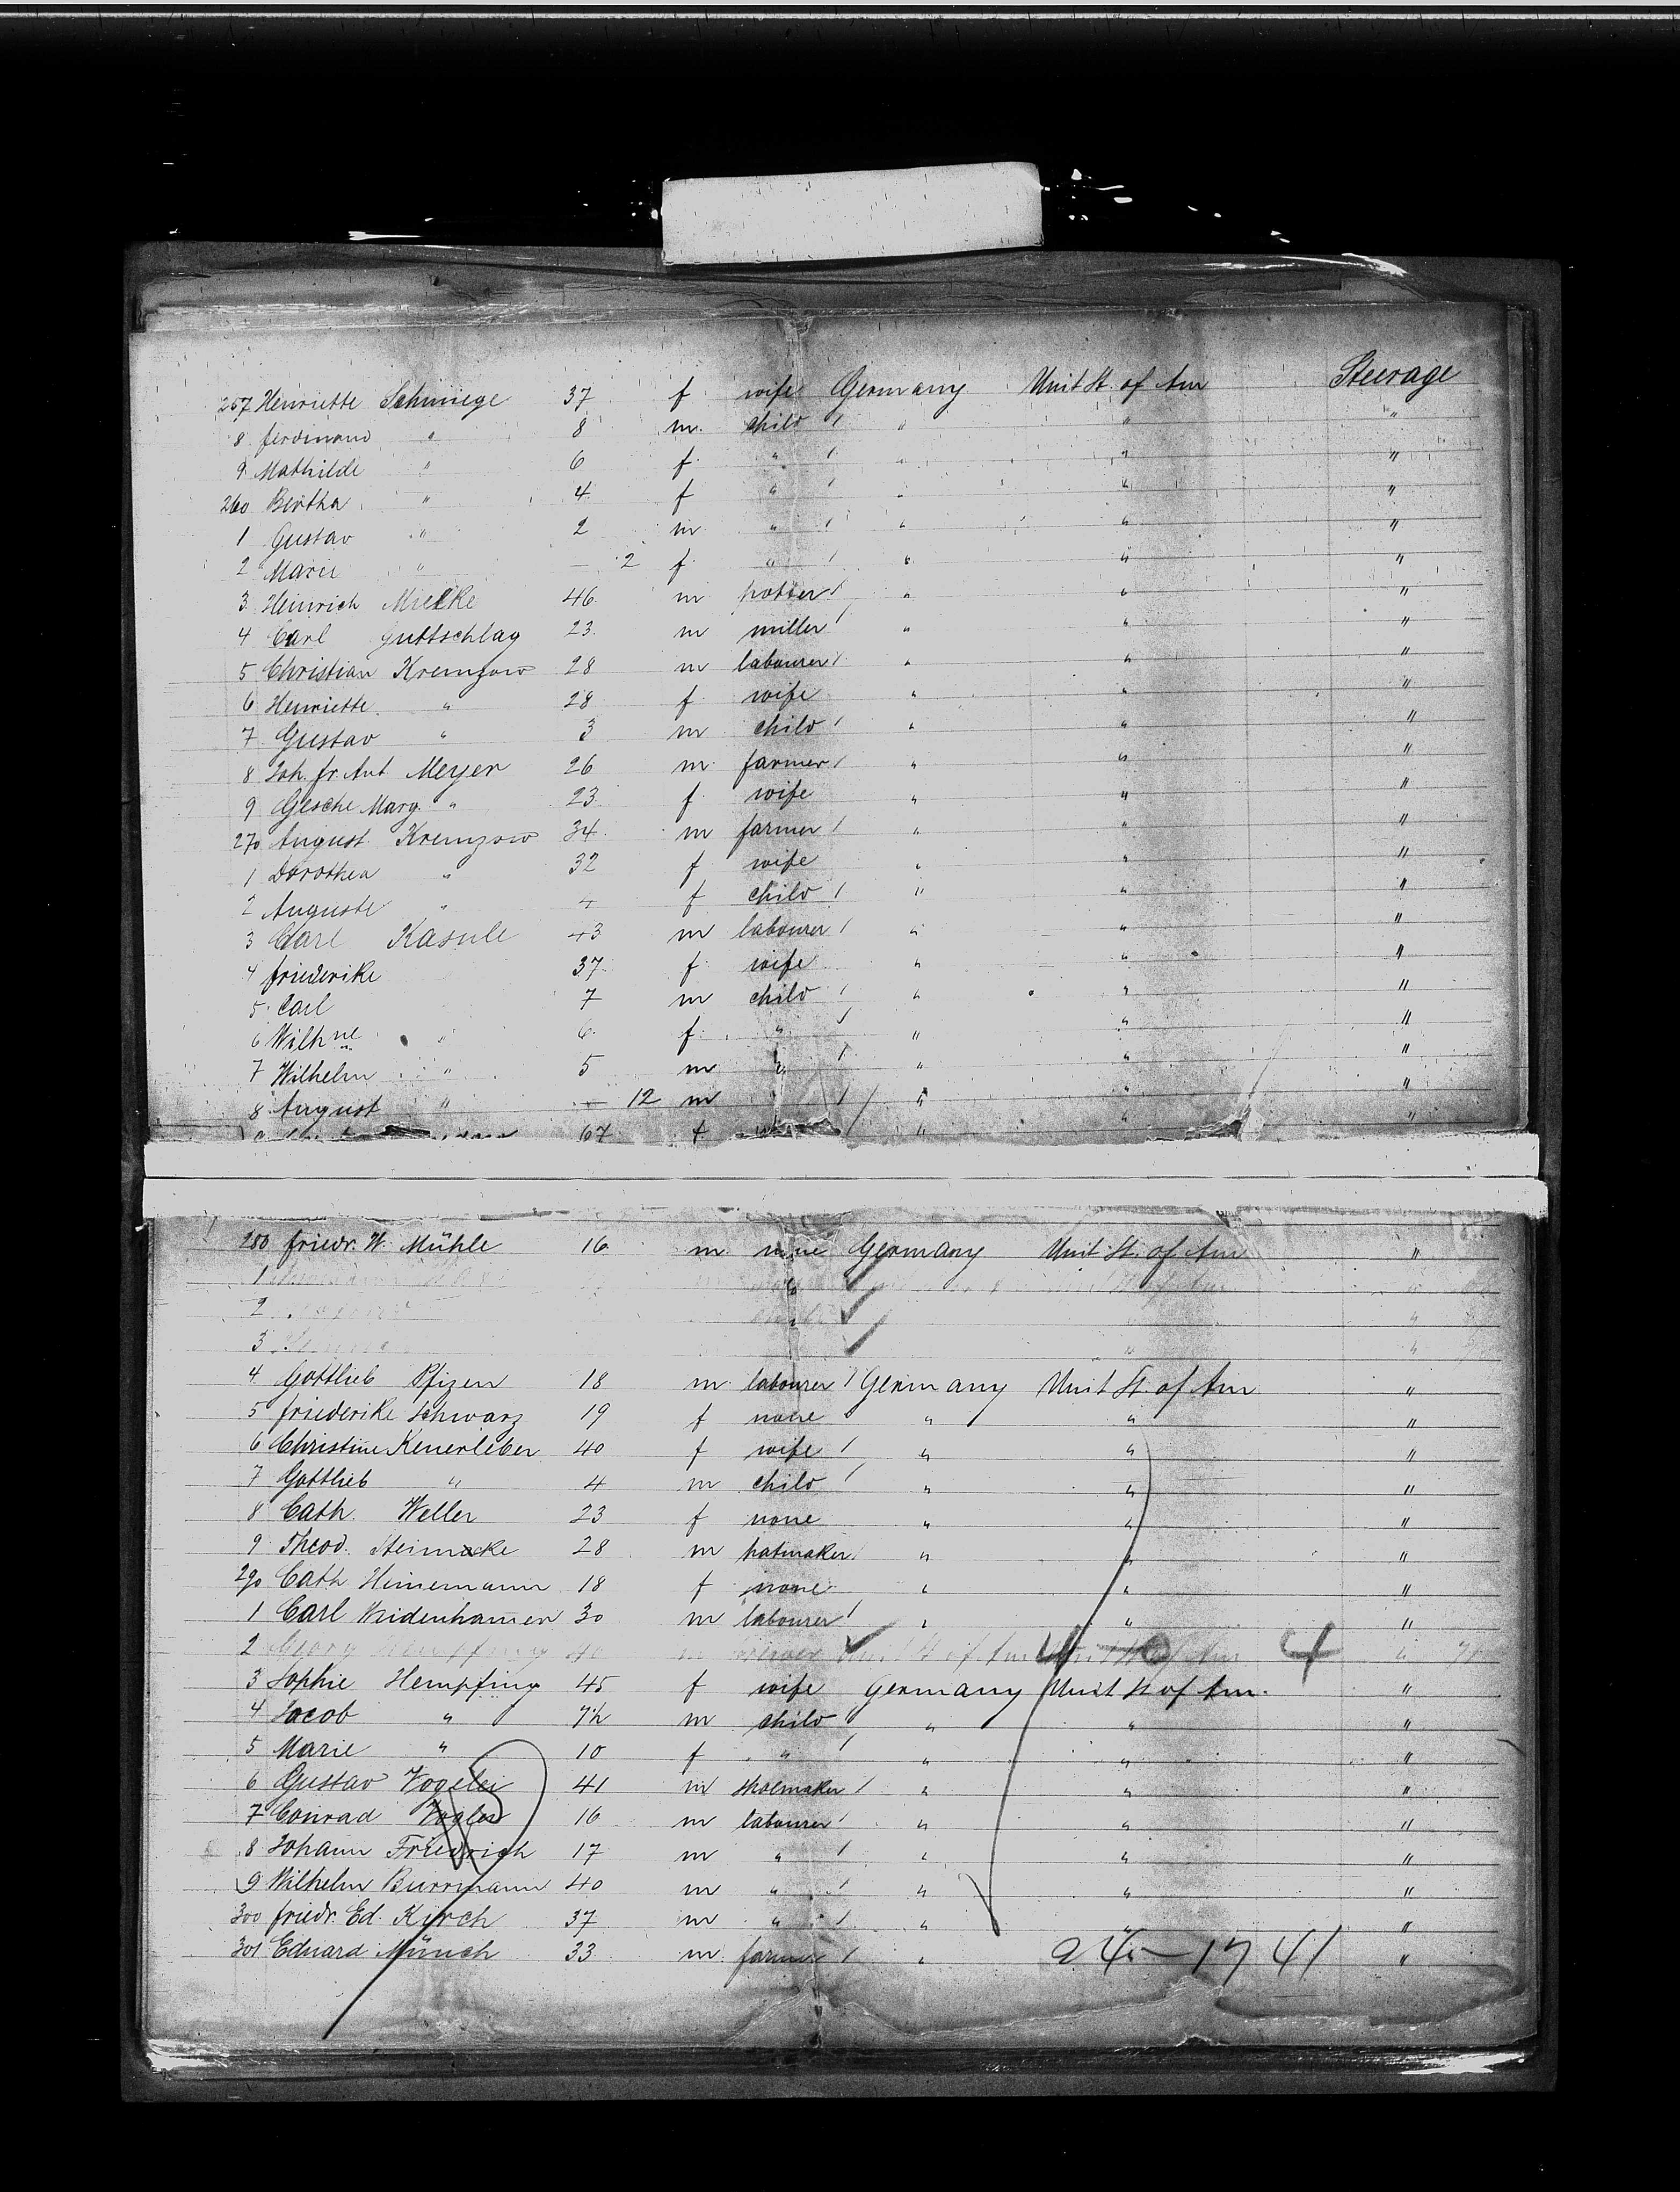 257 Henriette Schmiege 37 f wife Germany Unit St. of Am Steerage
8 Ferdinand " 8 m. child / " " "
9 Mathilde " 6 f. " / " " "
260 Bertha " 4 f " / " " "
1 Gustav " 2 m " / " " "
2 Marie " — 2 f " / " " "
3 Heinrich Mielke 46 m potter / " " "
4 Carl Guttschlag 23 m miller / " " "
5 Christian Kremzow 28 m labourer / " " "
6 Henriette " 28 f wife " " "
7 Gustav " 3 m child / " " "
8 Joh. fr. Ant Meyer 26 m farmer / " " "
9 Gesche Marg. " 23 f wife " " "
270 August Kremzow 34 m farmer / " " "
1 Dorothea " 32 f wife " " "
2 Auguste " 4 f child / " " "
3 Carl Kasule 43 m labourer / " " "
4 Friederike 37 f wife " " "
5 Carl 7 m child / " " "
6 Wilhne " 6 f. " / " " "
7 Wilhelm " 5 m " / " " "
8 August " — 12 m / " " "
67 f " " "
280 Friedr. W. Mühle 16 m none Germany Unit St. of Am "
1 "
2 "
3 "
4 Gottlieb Pfizen 18 m labourer / Germany Unit St. of Am "
5 Friederike Schwarz 19 f none " " "
6 Christine Keuerleber 40 f wife / " " "
7 Gottlieb " 4 m child / " " "
8 Cath. Weller 23 f none " " "
9 Theod. Steimacke 28 m hatmaker / " " "
290 Cath Heinemann 18 f none " " "
1 Carl Weidenhamen 30 m labourer / " " "
2 Georg Hempfing 40 m Unit St of Am 4 "
3 Sophie Hempfing 45 f wife Germany Unit St of Am. "
4 Jacob " m child " " "
5 Marie " 10 f " / " " "
6 Gustav Vogelei 41 m shoemaker / " " "
7 Conrad Vogler 16 m labourer / " " "
8 Johann Friedrich 17 m " / " " "
9 Wilhelm Burrmann 40 m " / " " "
300 Friedr. Ed. Kirch 37 m " / " " "
301 Eduard Münch 33 m farmer / " "